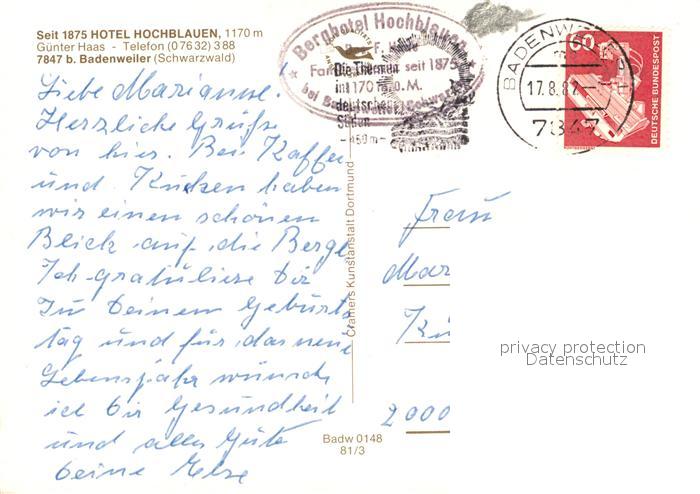 Seit 1875 HOTEL HOCHBLAUEN, 1170 m
Günter Haas - Telefon (07632) 388
7847 b. Badenweiler (Schwarzwald)
Liebe Marianne!
Herzliche Grüße
von hier. Bei Kaffee
und Kuchen haben
wir einen schönen
Blick auf die Berge
Ich gratuliere dir
zu Deinem Geburts
tag und für das neue
Lebensjahr wünsche
ich dir Gesundheit
und alles Gute
Deine Else
Berghotel Hochblauen
seit 1875
Die Thermen
im
deutschen
Süden
- 450 m -
BADENWEILER
17.8.82
7847
60
DEUTSCHE BUNDESPOST
Cramers Kunstanstalt Dortmund
Frau
Mar
Kü
2000
Badw 0148
81/3
privacy protection
Datenschutz